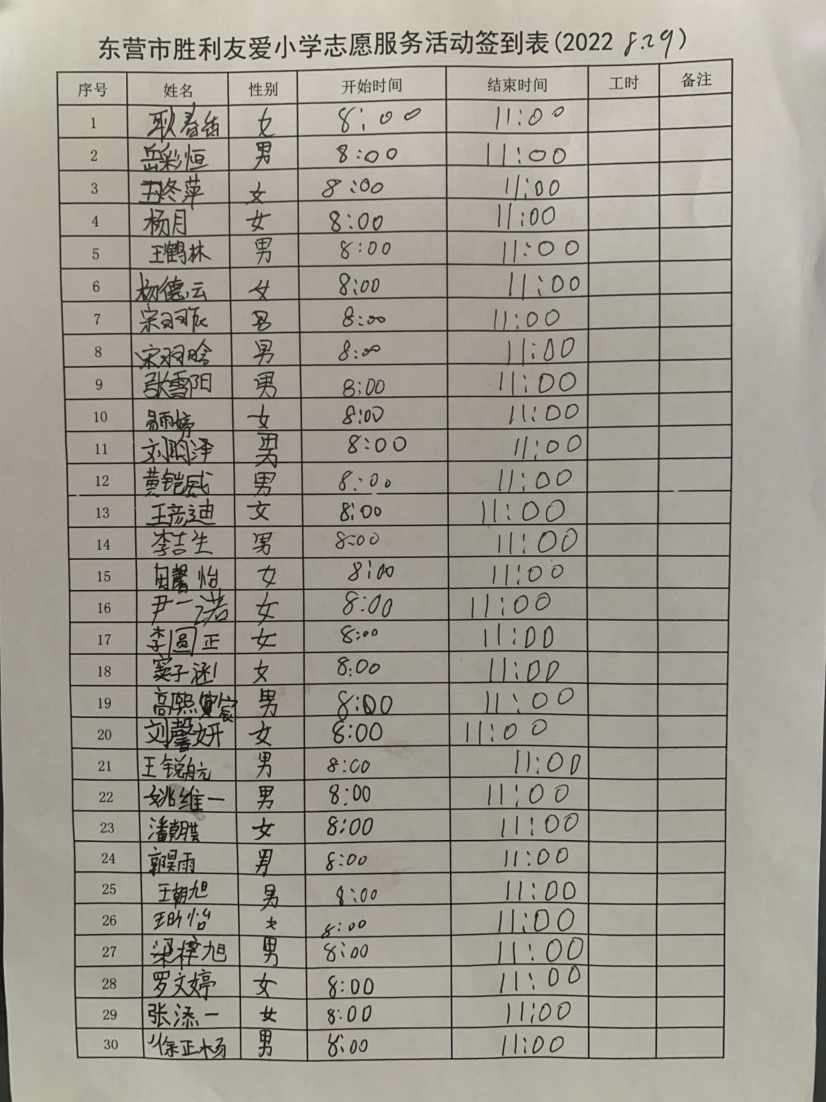 东营市胜利友爱小学志愿服务活动签到表(2022 8.29)
序号 姓名 性别 开始时间 结束时间 工时 备注
1 耿春香 女 8:00 11:00
2 岳彩恒 男 8:00 11:00
3 女 8:00 11:00
4 杨月 女 8:00 11:00
5 王鹤林 男 8:00 11:00
6 杨德云 女 8:00 11:00
7 宋羽 男 8:00 11:00
8 宋羽晗 男 8:00 11:00
9 张雪阳 男 8:00 11:00
10 女 8:00 11:00
11 刘玥泽 男 8:00 11:00
12 黄铠威 男 8:00 11:00
13 王彦迪 女 8:00 11:00
14 李吉生 男 8:00 11:00
15 馨怡 女 8:00 11:00
16 尹一诺 女 8:00 11:00
17 李圆正 女 8:00 11:00
18 窦子涵 女 8:00 11:00
19 高熙宸 男 8:00 11:00
20 刘馨妍 女 8:00 11:00
21 王锐航 男 8:00 11:00
22 姚维一 男 8:00 11:00
23 潘朝骐 女 8:00 11:00
24 郭昊雨 男 8:00 11:00
25 王朝旭 男 8:00 11:00
26 王昕怡 女 8:00 11:00
27 梁梓旭 男 8:00 11:00
28 罗文婷 女 8:00 11:00
29 张添一 女 8:00 11:00
30 徐正杨 男 8:00 11:00